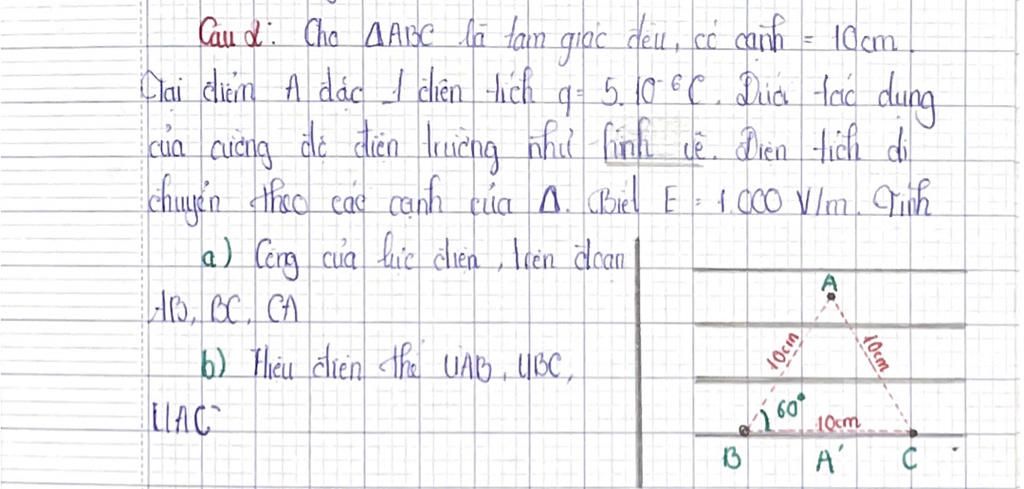 Câu 2: Cho ΔABC là tam giác đều, có cạnh = 10cm.
Tại điểm A đặt 1 điện tích q = 5.10⁻⁶C. Dưới tác dụng
của cường độ điện trường như hình vẽ. Điện tích di
chuyển theo các cạnh của Δ. Biết E = 1.000 V/m. Tính
a) Công của lực điện, trên đoạn
AB, BC, CA
b) Hiệu điện thế UAB, UBC,
UAC
A
10cm
10cm
60°
10cm
B
A'
C